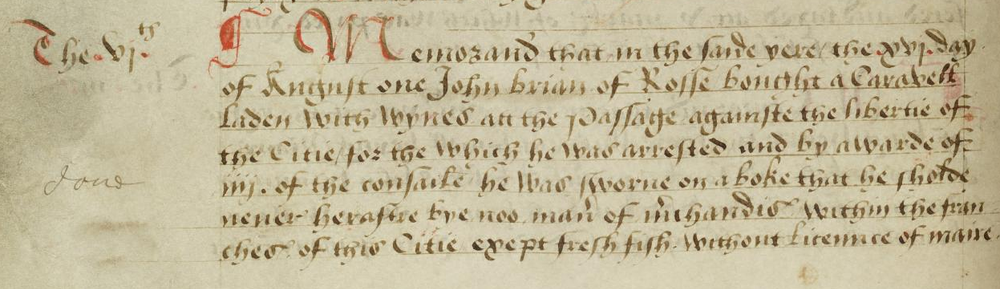 The .vj.th
Memorand that in the saide yere / the xvj day
of August one John brian of Rosse bought a Caravell
laden with wynes att the passage againste the libertie of
the Citie / for the which he was arrested and by awarde of
iiij. of the consaile he was sworne on a boke that he sholde
done
never heraftre bye noo man of mchandis within the fran
ches of this Citie exept fresh fish. without licennce of maire